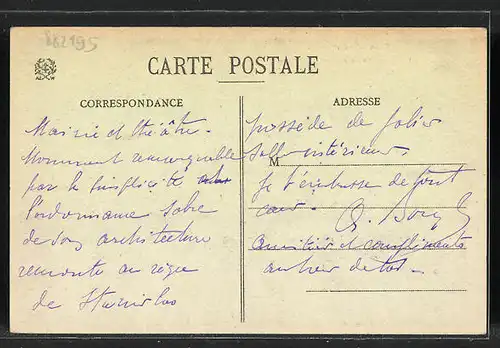 882195
CARTE POSTALE
CORRESPONDANCE
ADRESSE
Mairie et théâtre.
Monument remarquable
par la simplicité
l'ordonnance sobre
de son architecture
remonte au règne
de Stanislas
possède de jolies
M
salles intérieures.
Je t'embrasse de tout
cœur.
Amitiés et compliments